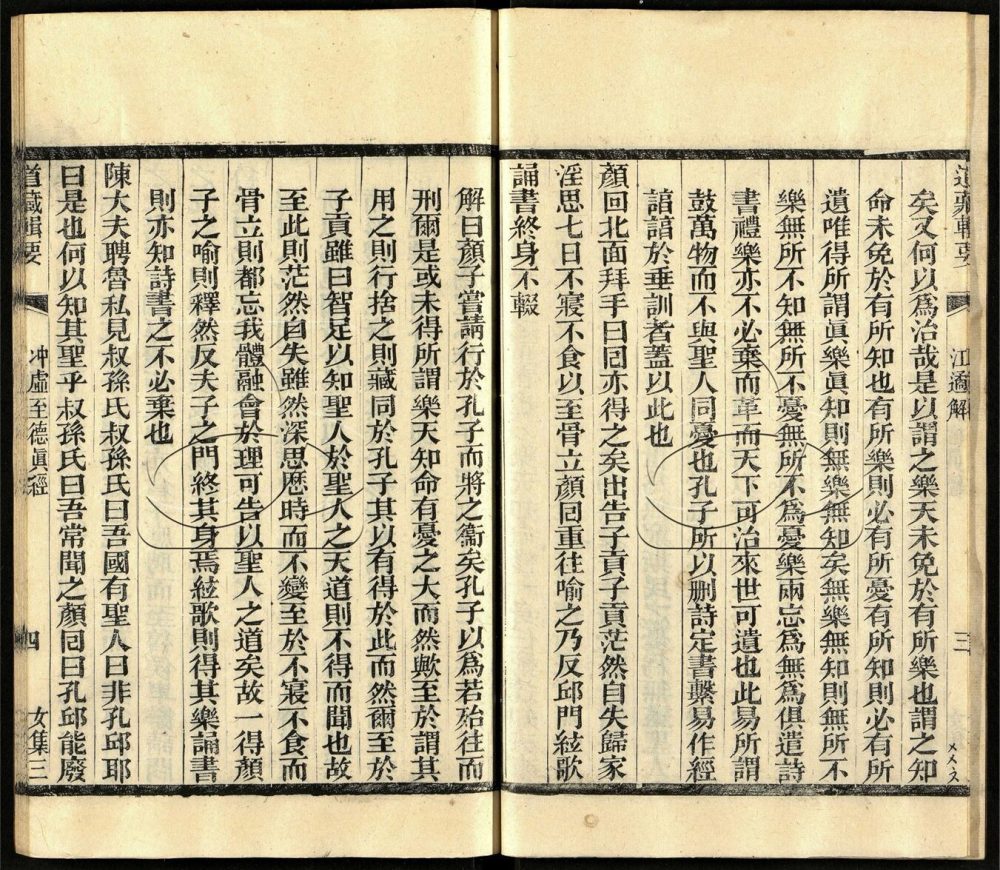 道藏輯要
江遹解
三
矣又何以爲治哉是以謂之樂天未免於有所樂也謂之知
命未免於有所知也有所樂則必有所憂有所知則必有所
遺唯得所謂眞樂眞知則無樂無知矣無樂無知則無所不
樂無所不知無所不憂無所不爲憂樂兩忘爲無爲俱遣詩
書禮樂亦不必棄而革而天下可治來世可遺也此易所謂
鼓萬物而不與聖人同憂也孔子所以删詩定書繫易作經
諳諳於垂訓者蓋以此也
顏回北面拜手曰囘亦得之矣出告子貢子貢茫然自失歸家
淫思七日不寢不食以至骨立顏囘重往喻之乃反邱門絃歌
誦書終身不輟
解曰顏子嘗請行於孔子而將之衞矣孔子以爲若殆往而
刑爾是或未得所謂樂天知命有憂之大而然歟至於謂其
用之則行捨之則藏同於孔子其以有得於此而然爾至於
子貢雖曰智足以知聖人於聖人之天道則不得而聞也故
至此則茫然自失雖然深思歷時而不變至於不寢不食而
骨立則都忘我體融會於理可告以聖人之道矣故一得顏
子之喻則釋然反夫子之門終其身焉絃歌則得其樂誦書
則亦知詩書之不必棄也
陳大夫聘魯私見叔孫氏叔孫氏曰吾國有聖人曰非孔邱耶
曰是也何以知其聖乎叔孫氏曰吾常聞之顏囘曰孔邱能廢
道藏輯要
冲虛至德眞經
四
女集三